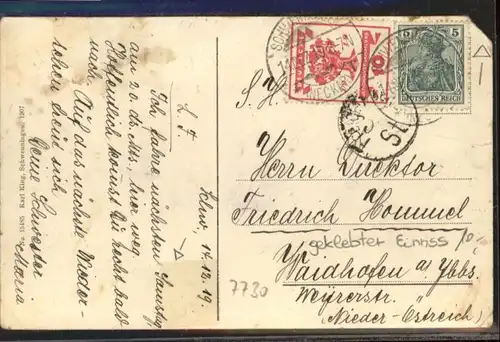 Schw. 17.12.19.
L. F.
Ich fahre nächsten Samstag
am 20. ds. Mts. hier weg.
Hoffentlich kommst Du recht bald
nach. Auf das nächste Wieder-
sehen freut sich
Deine Schwester
Maria
Karl King, Schwenningen. 1907
5 5
DEUTSCHES REICH
10
S. H.
Herrn Direktor
Friedrich Hommel
geklebter Einriss 10.-
Waidhofen a/Ybbs.
7730
Weyrerstr.
(Nieder-Östreich)